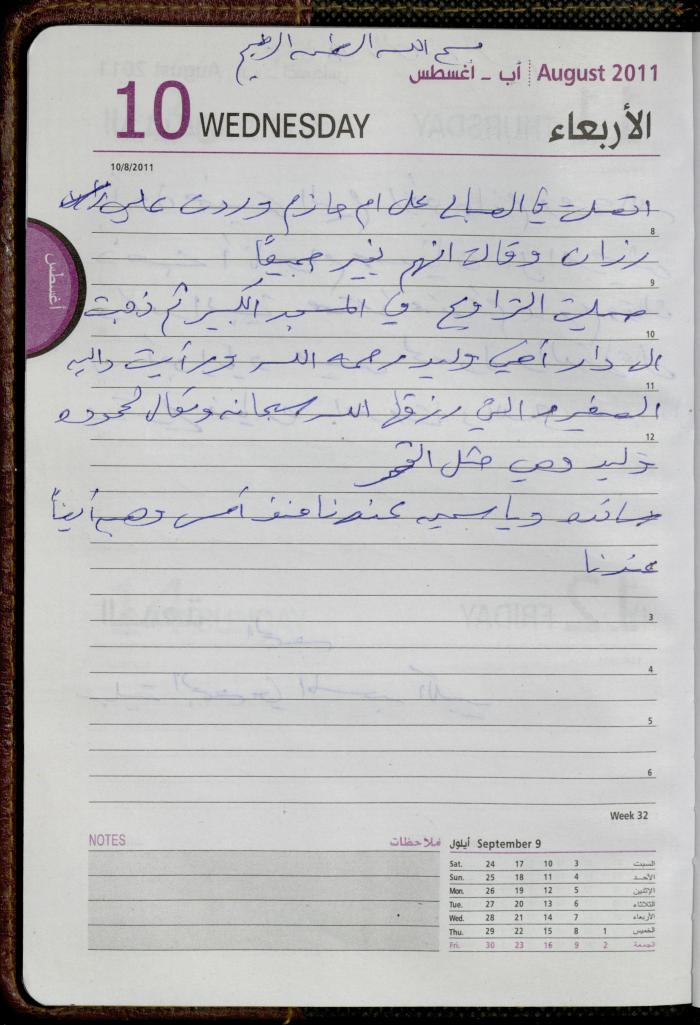 بسم الله الرحمن الرحيم
آب - أغسطس August 2011
10 WEDNESDAY الأربعاء
10/8/2011
اتصلت في الصباح على ام حازم وردت علي
8
رزان وقالت انهم بخير جميعًا
9
صليت التراويح في المسجد الكبير ثم ذهبت
10
الى دار أخي وليد رحمه الله ورأيت داليه
11
الصغيرة التي رزقها الله سبحانه وتعالى لمحمود
12
وليد وهي مثل القمر
سائده وياسمين عندنا منذ أمس وهم أيضاً
عندنا
أغسطس
3
4
5
6
Week 32
NOTES ملاحظات
أيلول September 9
Sat. 24 17 10 3 السبت
Sun. 25 18 11 4 الأحد
Mon. 26 19 12 5 الإثنين
Tue. 27 20 13 6 الثلاثاء
Wed. 28 21 14 7 الأربعاء
Thu. 29 22 15 8 1 الخميس
Fri. 30 23 16 9 2 الجمعة